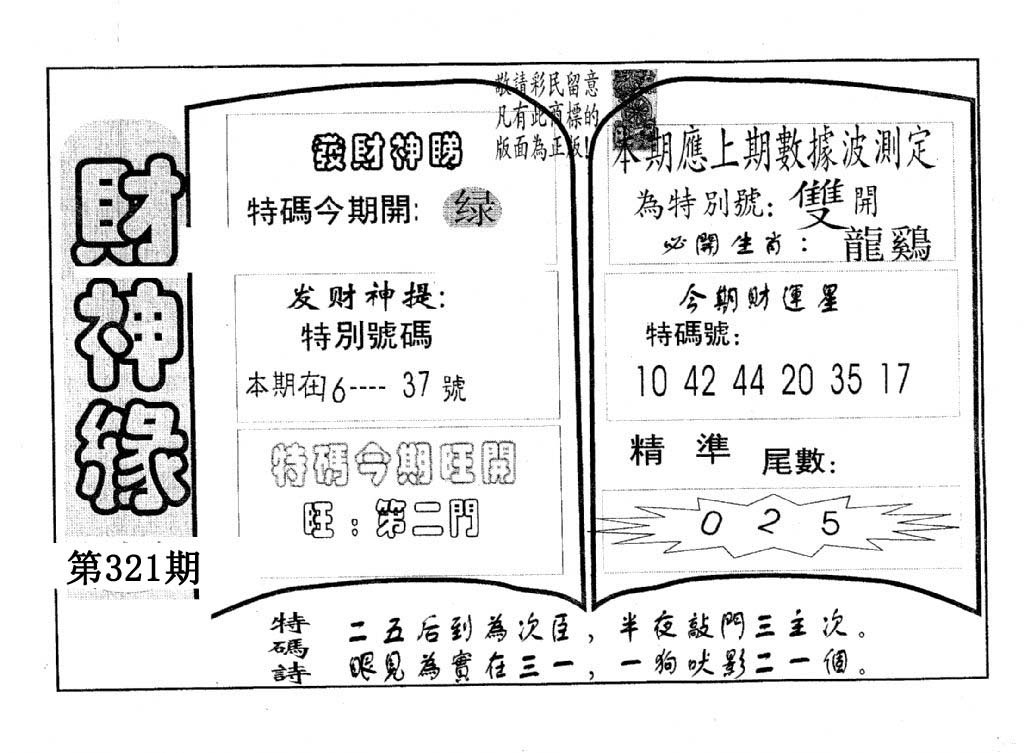 財神緣
第321期
敬請彩民留意
凡有此商標的
版面為正版!
發財神睇
特碼今期開: 绿
发财神提:
特別號碼
本期在6---- 37 號
特碼今期旺開
旺:第二門
本期應上期數據波測定
為特別號: 雙開
必開生肖: 龍鷄
今期財運星
特碼號:
10 42 44 20 35 17
精準尾數:
0 2 5
特碼詩
二五后到為次臣,半夜敲門三主次。
眼見為實在三一,一狗吠影二一個。